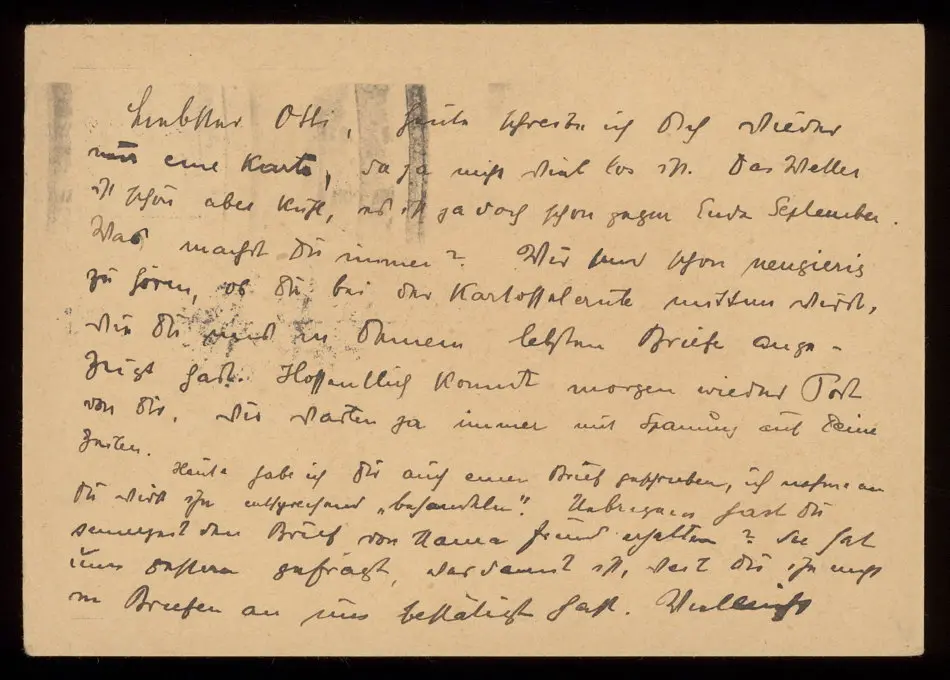 Liebster Otti, heute schreibe ich Dich wieder
nur eine Karte, da ja nicht viel los ist. Das Wetter
ist schön aber kühl, es ist ja doch schon gegen Ende September.
Was machst Du immer? Wir sind schon neugierig
zu hören, ob Du bei der Kartoffelernte mittun wirst,
wie Du uns in Deinem letzten Briefe ange-
zeigt hast. Hoffentlich kommt morgen wieder Post
von Dir. Wir warten ja immer mit Spannung auf Deine
Zeilen.
Heute habe ich Dir auch einen Brief geschrieben, ich nehme an
Du wirst ihn entsprechend „behandeln". Uebrigens hast Du
seinerzeit den Brief von Mama Freund erhalten? Sie hat
uns gestern gefragt, was damit ist, weil Du ihn nicht
in Briefen an uns bestätigt hast. Vielleicht